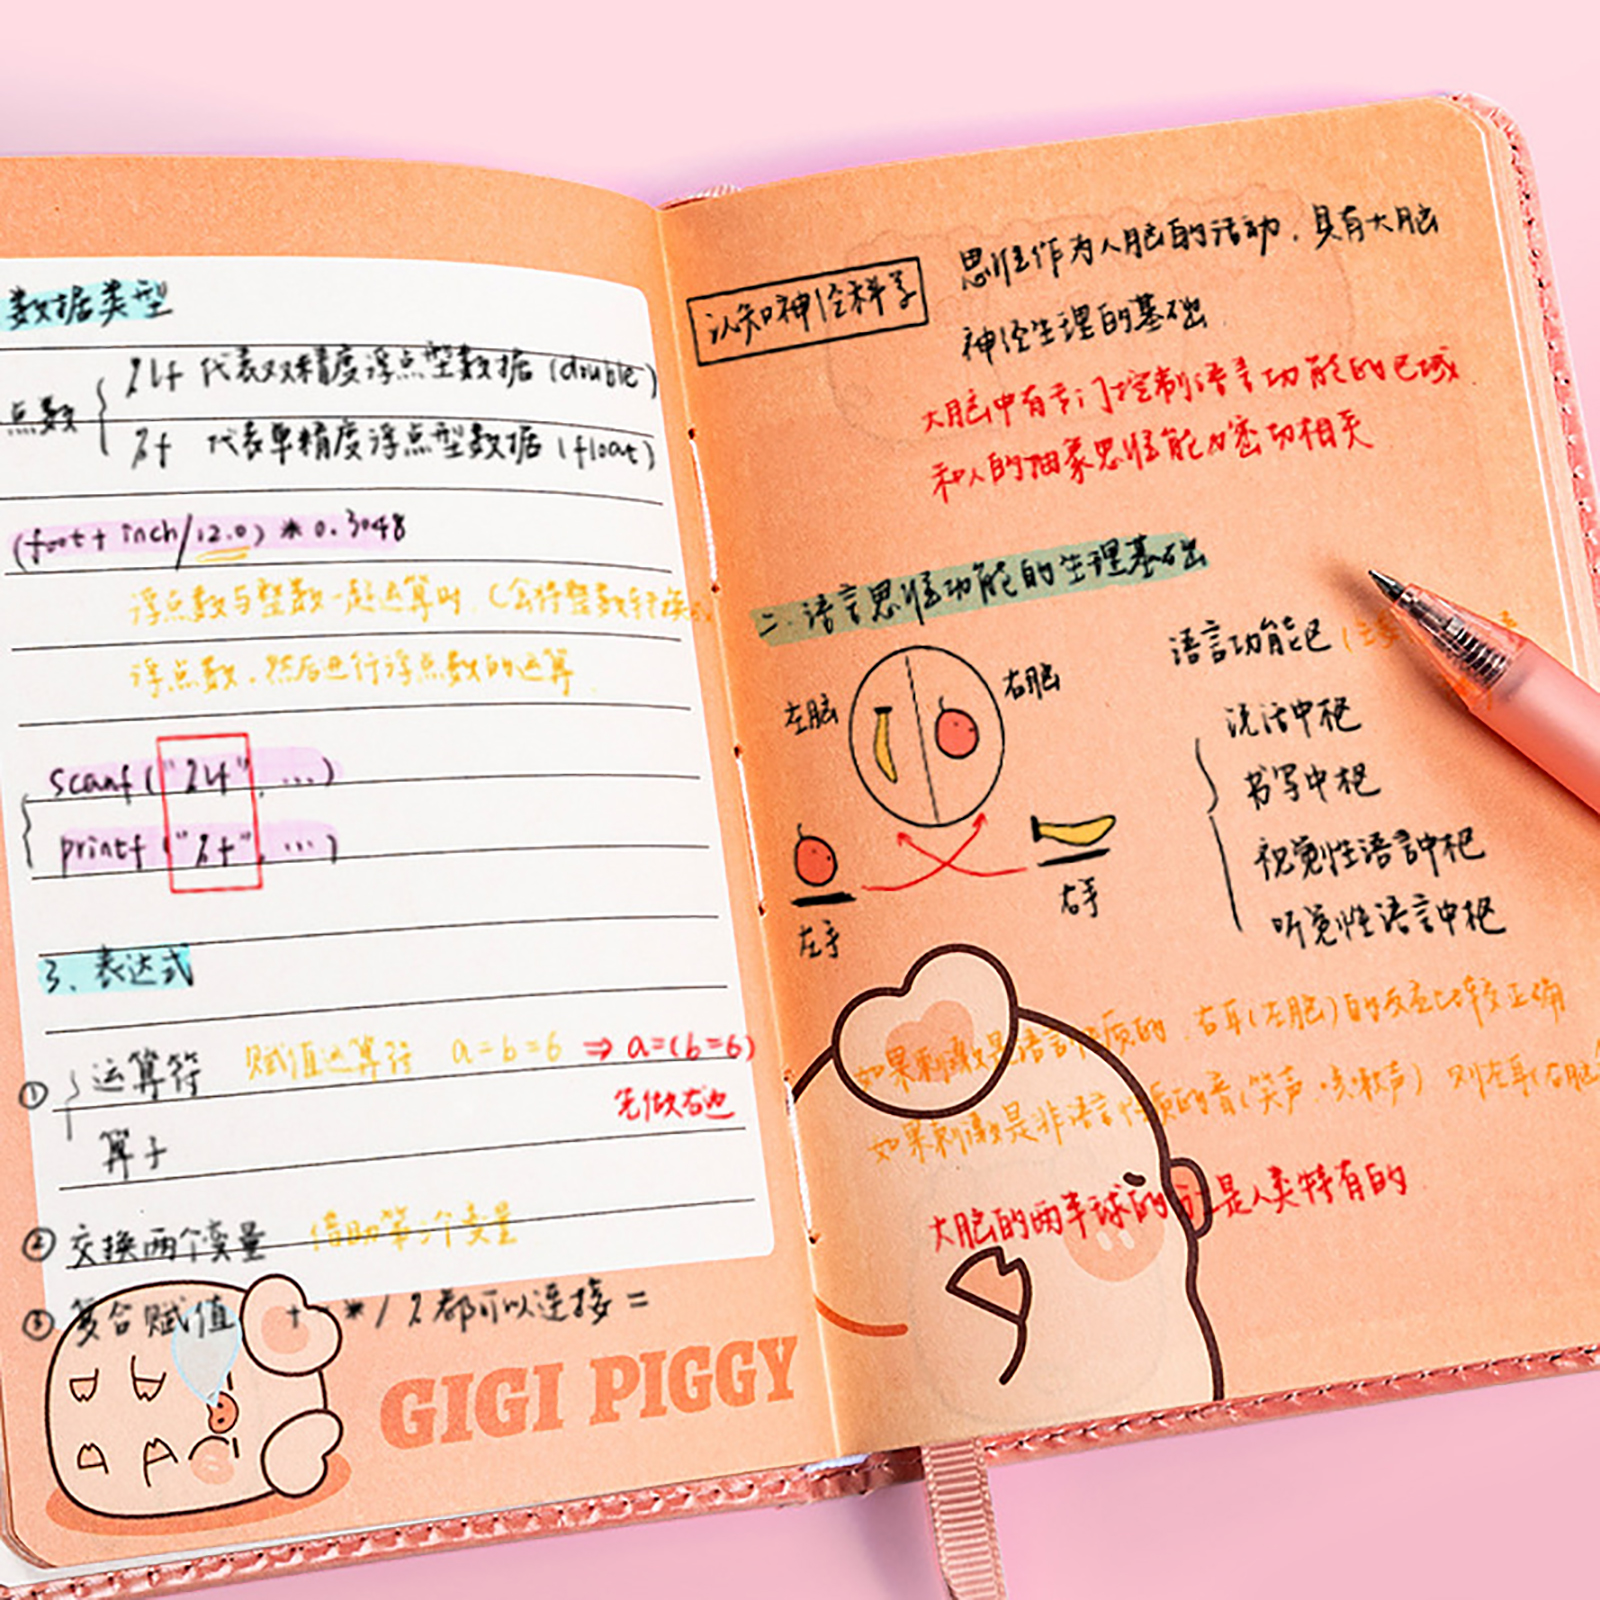 数据类型
点数
%lf 代表双精度浮点型数据 (double)
%f 代表单精度浮点型数据 (float)
(foot + inch/12.0) * 0.3048
浮点数与整数一起运算时,(会将整数转换成
浮点数,然后进行浮点数的运算
scanf("%lf", ...)
printf("%f", ...)
3、表达式
① 运算符 赋值运算符 a=b=6 ⇒ a=(b=6)
先做右边
算子
② 交换两个变量 借助第三个变量
③ 复合赋值 + * / %都可以连接 =
GIGI PIGGY
认知神经科学
思维作为人脑的活动,具有大脑
神经生理的基础
大脑中有专门控制语言功能的区域
和人的抽象思维能力密切相关
二.语言思维功能的生理基础
左脑
右脑
左手
右手
语言功能区
说话中枢
书写中枢
视觉性语言中枢
听觉性语言中枢
如果刺激是语言性质的,右耳(左脑)的反应比较正确
如果刺激是非语言性质的音(笑声·咳嗽声) 则左耳(右脑
大脑的两半球的分工是人类特有的